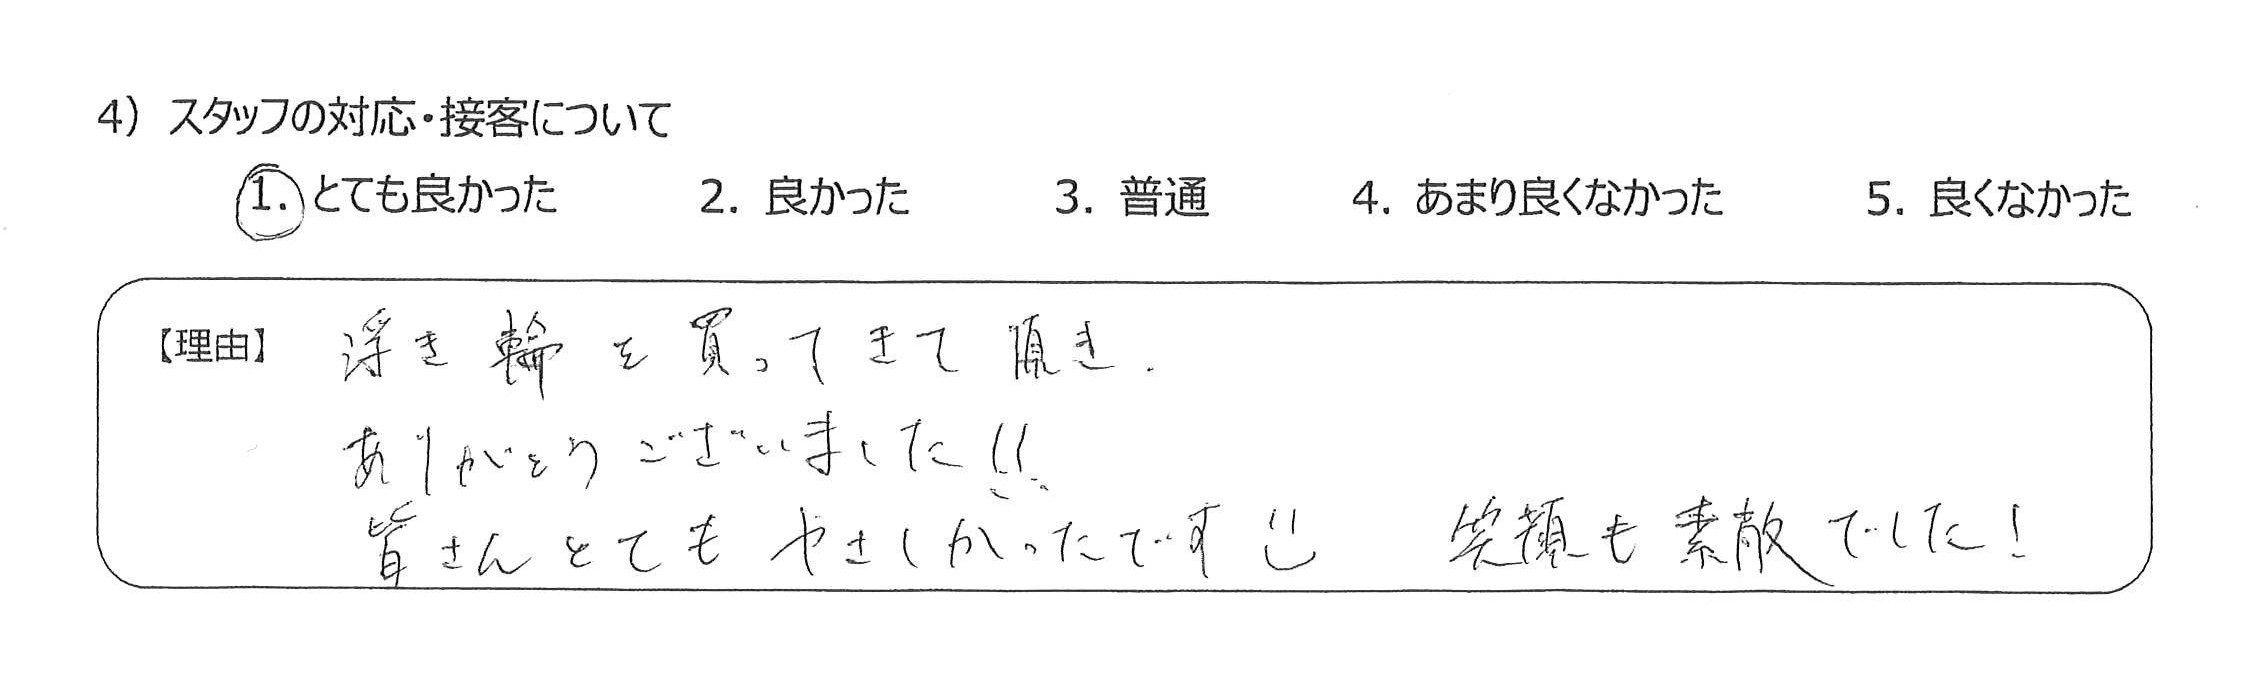 4) スタッフの対応・接客について
1. とても良かった 2. 良かった 3. 普通 4. あまり良くなかった 5. 良くなかった
【理由】 浮き輪を買ってきて頂き.
ありがとうございました!!
皆さんとてもやさしかったです 笑顔も素敵でした!